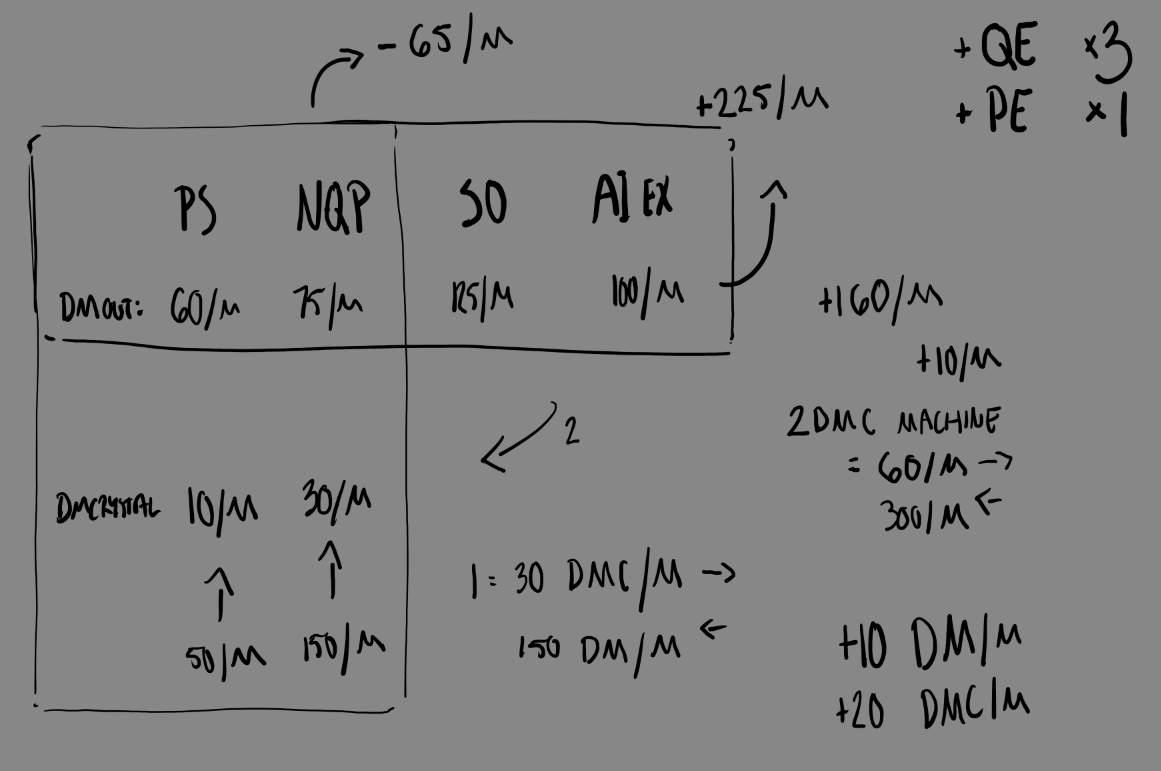 - 65/M
+ QE x3
+225/M
+ PE x1
PS NQP SO AI EX
DM OUT: 60/M 75/M 125/M 100/M
+160/M
+10/M
2
2 DMC MACHINE
= 60/M →
300/M ←
DMCRYSTAL 10/M 30/M
1 = 30 DMC/M →
150 DM/M ←
50/M 150/M
+10 DM/M
+20 DMC/M